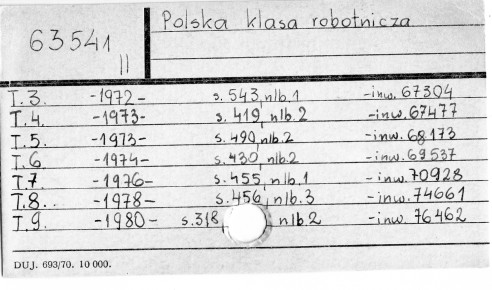 63541
II
Polska klasa robotnicza
T. 3. -1972- s. 543, nlb. 1 -inw. 67304
T. 4. -1973- s. 419, nlb. 2 -inw. 67477
T. 5. -1973- s. 490, nlb. 2 -inw. 68173
T. 6 -1974- s. 430, nlb. 2 -inw. 69537
T. 7 -1976- s. 455, nlb. 1 -inw. 70928
T. 8. -1978- s. 456, nlb. 3 -inw. 74661
T. 9. -1980- s. 318, nlb. 2 -inw. 76462
DUJ. 693/70. 10 000.